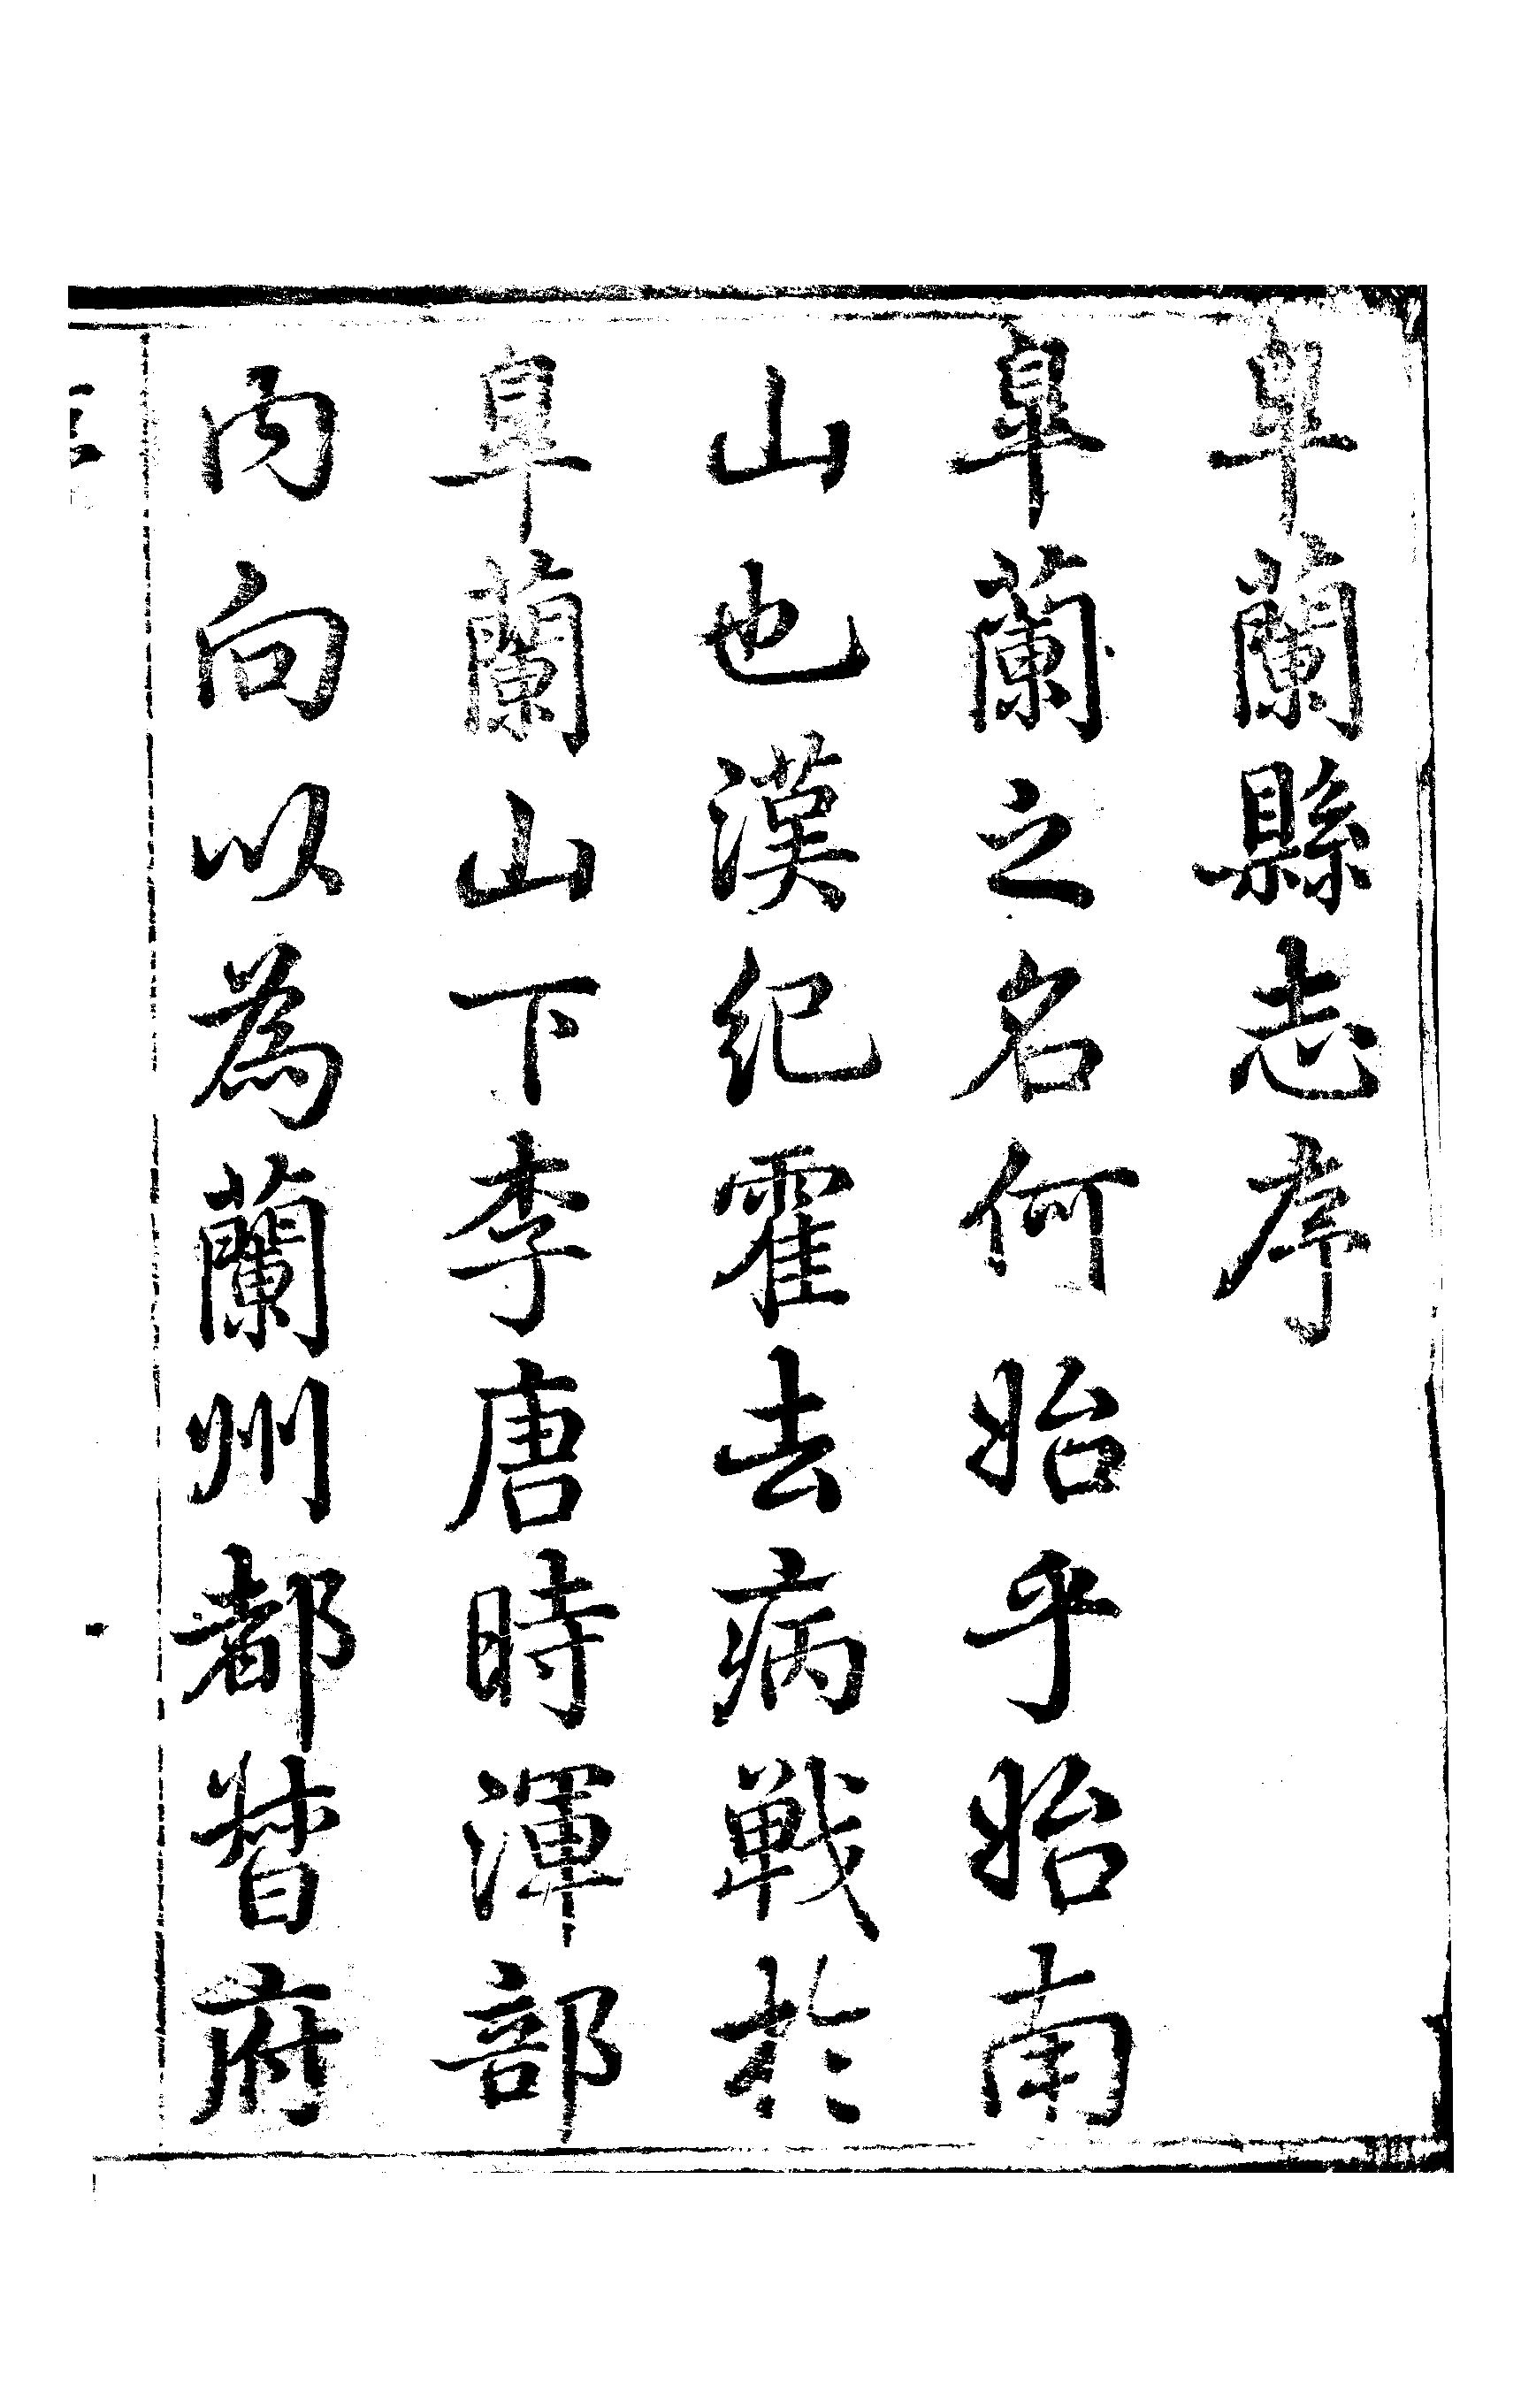 皐蘭縣志序
皐蘭之名何昉乎昉南
山也漢紀霍去病戰於
皐蘭山下李唐時渾部
內向以為蘭州都督府